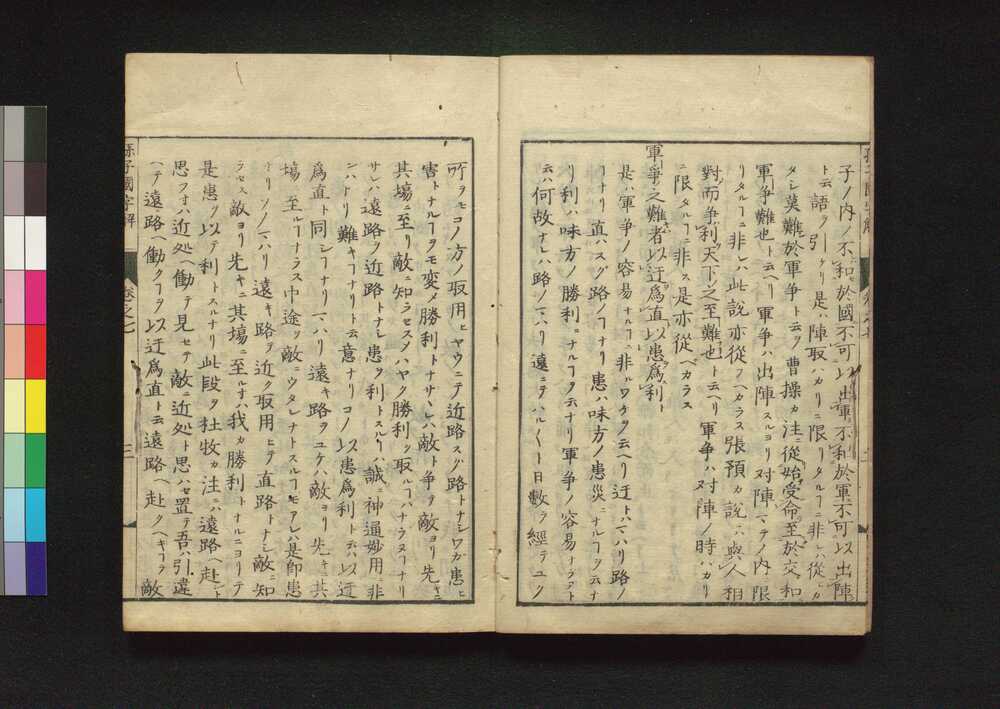 子ノ内ノ不和於國不可以出軍不和於軍不可以出陣
ト云語ヲ引ケリ是ハ陣取ハカリニ限リタルヿニ非レハ從ヒカ
タシ莫難於軍爭ト云ヲ曹操カ注ニ從始受命至於交和
軍爭難也ト云ヘリ軍爭ハ出陣スルヨリ対陣マテノ内ニ限
リタルヿニ非レハ此說亦從フヘカラス張預カ說ハ與人相
對而爭利天下之至難也ト云ヘリ軍爭ハ対陣ノ時ハカリ
ニ限タルヿニ非ス是亦從ヘカラス
軍爭之難者以迂爲直以患爲利
是ハ軍爭ノ容易ナルヿニ非ルワケヲ云ヘリ迂トハマハリ路ノ
ヿナリ直ハスグ路ノヿナリ患ハ味方ノ患災ニナルヿヲ云ナ
リ利ハ味方ノ勝利ニナルヿヲ云ナリ軍爭ノ容易ナラヌト
云ハ何故ナレハ路ノマハリ遠ニテハル〱ト日數ヲ經テユク
所ヲモコノ方ノ取用ヒヤウニテ近路スグ路トナシワガ患ヒ
害トナルヿヲモ変メ勝利トナサハレハ敵ト爭ヲ敵ヨリ先キニ
其場ニ至リ敵ニ知ラセスノハヤク勝利ヲ取ルヿハナラヌヿナリ
サレハ遠路ヲ近路トナシ患ヲ利トスルヿハ誠ニ神通妙用ニ非
レハナリ難キヿナリト云意ナリコノ以患爲利ト云ハ以迂
爲直ト同シヿナリマハリ遠キ路ヲユケハ敵ヨリ先キニ其
場ニ至ルヿナラス中途ニテ敵ニウタレナトスルヿモアレハ是即患
ナリソノマハリ遠キ路ヲ近ク取用ヒテ直路トナシ敵ニ知
ラセス敵ヨリ先キニ其場ニ至ルヿハ我カ勝利トナルニヨリテ
是患ヲ以テ利トスルナリ此段ヲ杜牧カ注ニハ遠路ヘ赴ント
思フヿハ近処ヘ働テ見セテ敵ニ近処ト思ハセ置テ吾ハ引違
ヘテ遠路ヘ働クヿヲ以迂爲直ト云遠路ヘ赴クヘキヿヲ敵
孫子國字解
卷之七